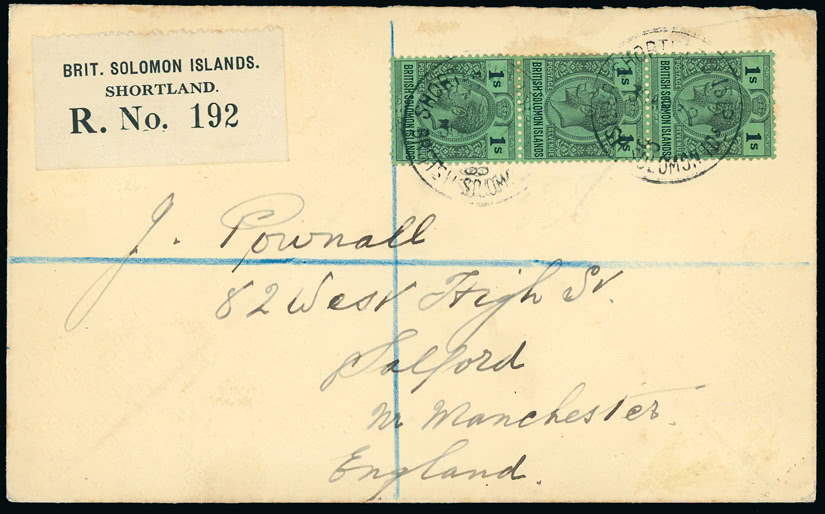 BRIT. SOLOMON ISLANDS.
SHORTLAND.
R. No. 192
1s 1s
BRITISH SOLOMON ISLANDS
POSTAGE REVENUE
1s 1s
BRITISH SOLOMON ISLANDS
POSTAGE REVENUE
1s 1s
BRITISH SOLOMON ISLANDS
POSTAGE REVENUE
J. Pownall
82 West High St.
Salford
Nr Manchester.
England.